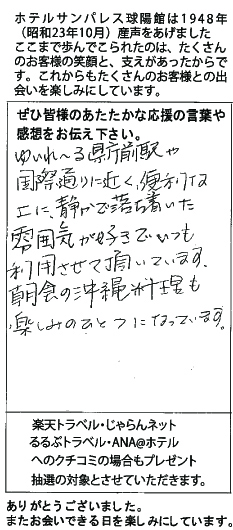 ホテルサンパレス球陽館は1948年
（昭和23年10月）産声をあげました
ここまで歩んでこられたのは、たくさん
のお客様の笑顔と、支えがあったからで
す。これからもたくさんのお客様との出
会いを楽しみにしています。
ぜひ皆様のあたたかな応援の言葉や
感想をお伝え下さい。
ゆいれ～る県庁前駅や
国際通りに近く、便利な
上に、静かで落ち着いた
雰囲気が好きでいつも
利用させて頂いています。
朝食の沖縄料理も
楽しみのひとつになっています。
楽天トラベル・じゃらんネット
るるぶトラベル・ANA@ホテル
へのクチコミの場合もプレゼント
抽選の対象とさせていただきます。
ありがとうございました。
またお会いできる日を楽しみにしています。